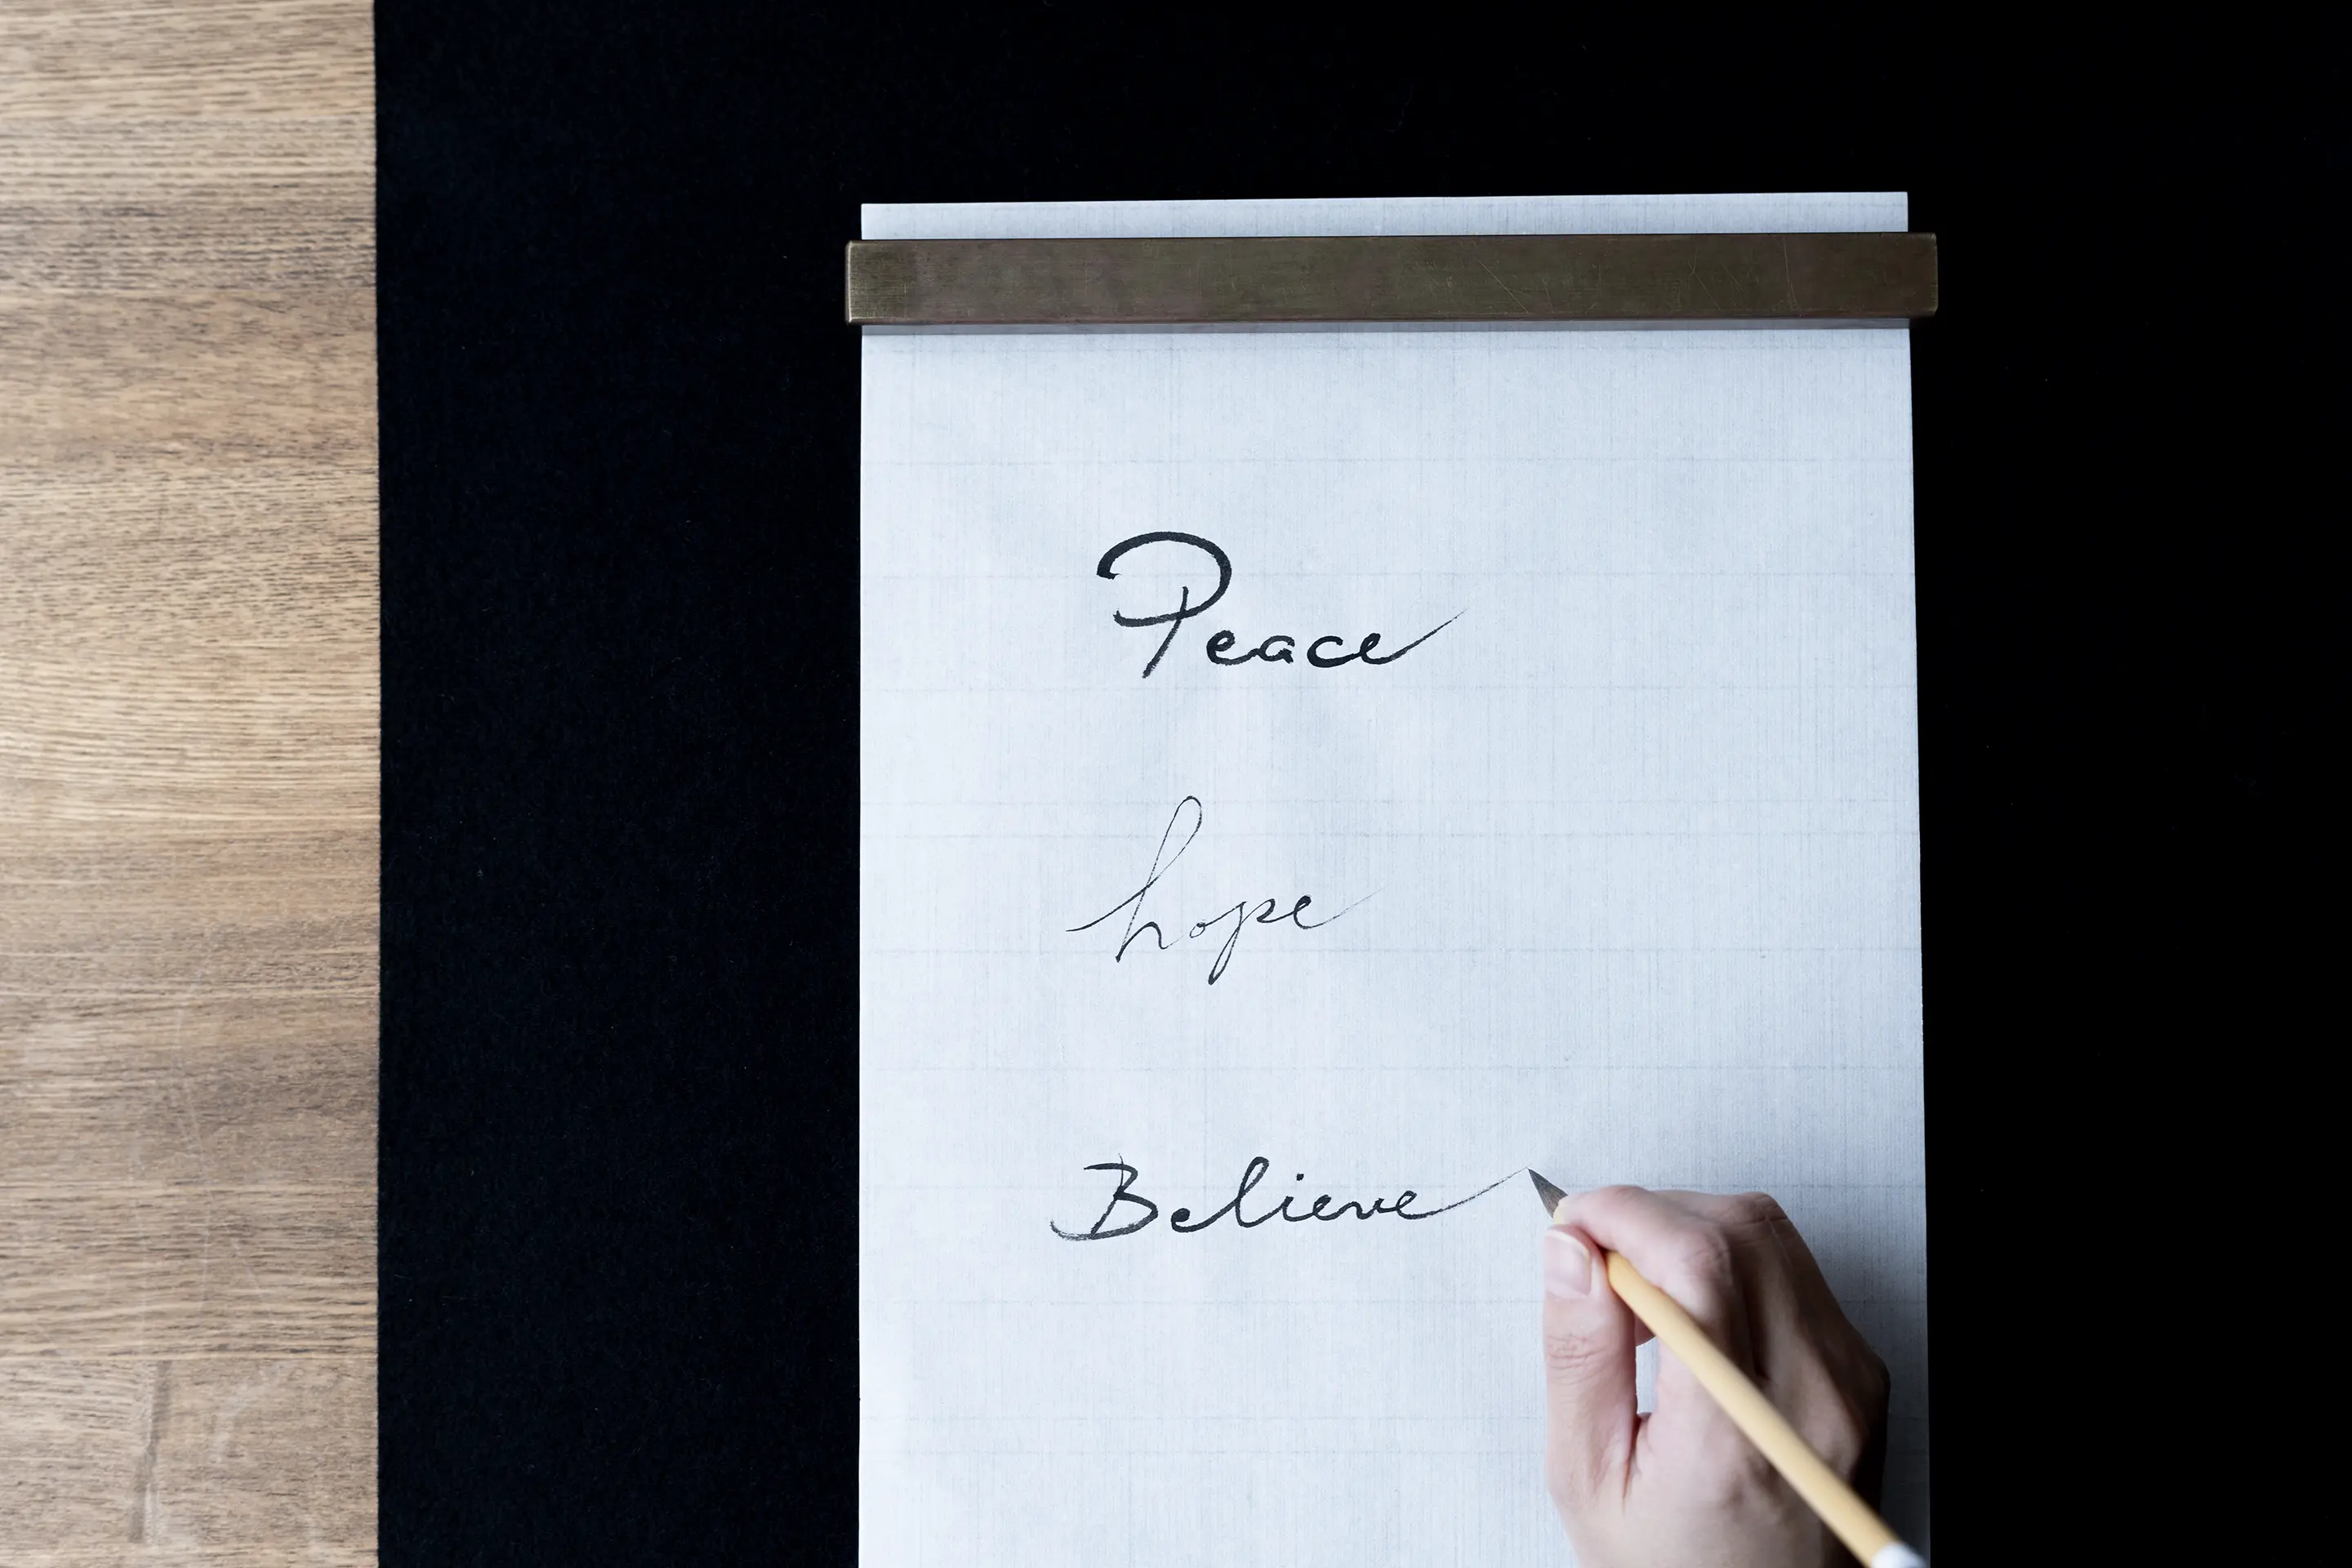 Peace
hope
Believe